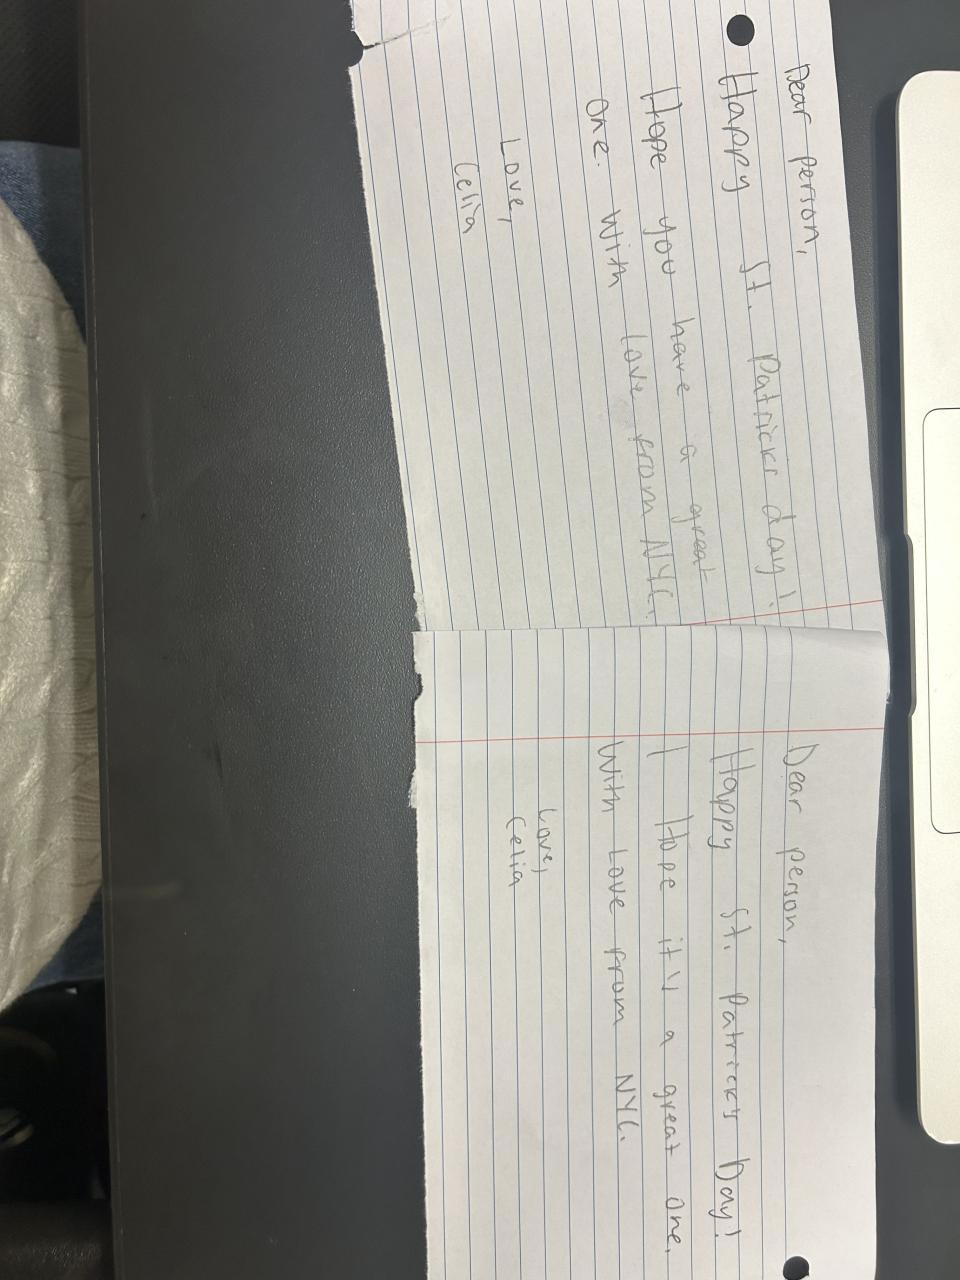 Dear person,
Happy St. Patricks day!
Hope you have a great
one. With love from NYC.
Love,
Celia
Dear person,
Happy St. Patrick's Day!
I Hope it's a great one.
With Love from NYC.
Love,
Celia